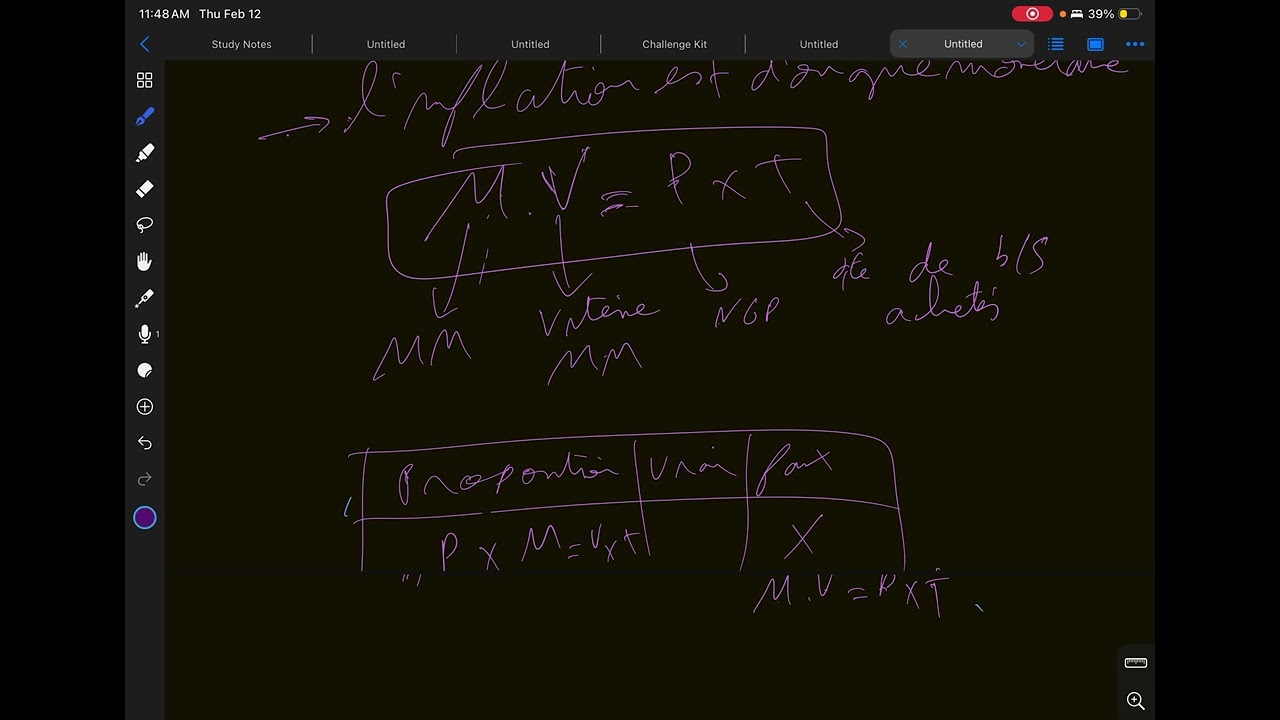 11:48 AM Thu Feb 12
39%
Study Notes
Untitled
Untitled
Challenge Kit
Untitled
Untitled
→ l'inflation est d'origine monétaire
M . V = P x T
MM
Vitesse
MM
NGP
qte de b/S
achetés
1
Proposition Vrai faux
P x M = V x t X
M . V = P x T